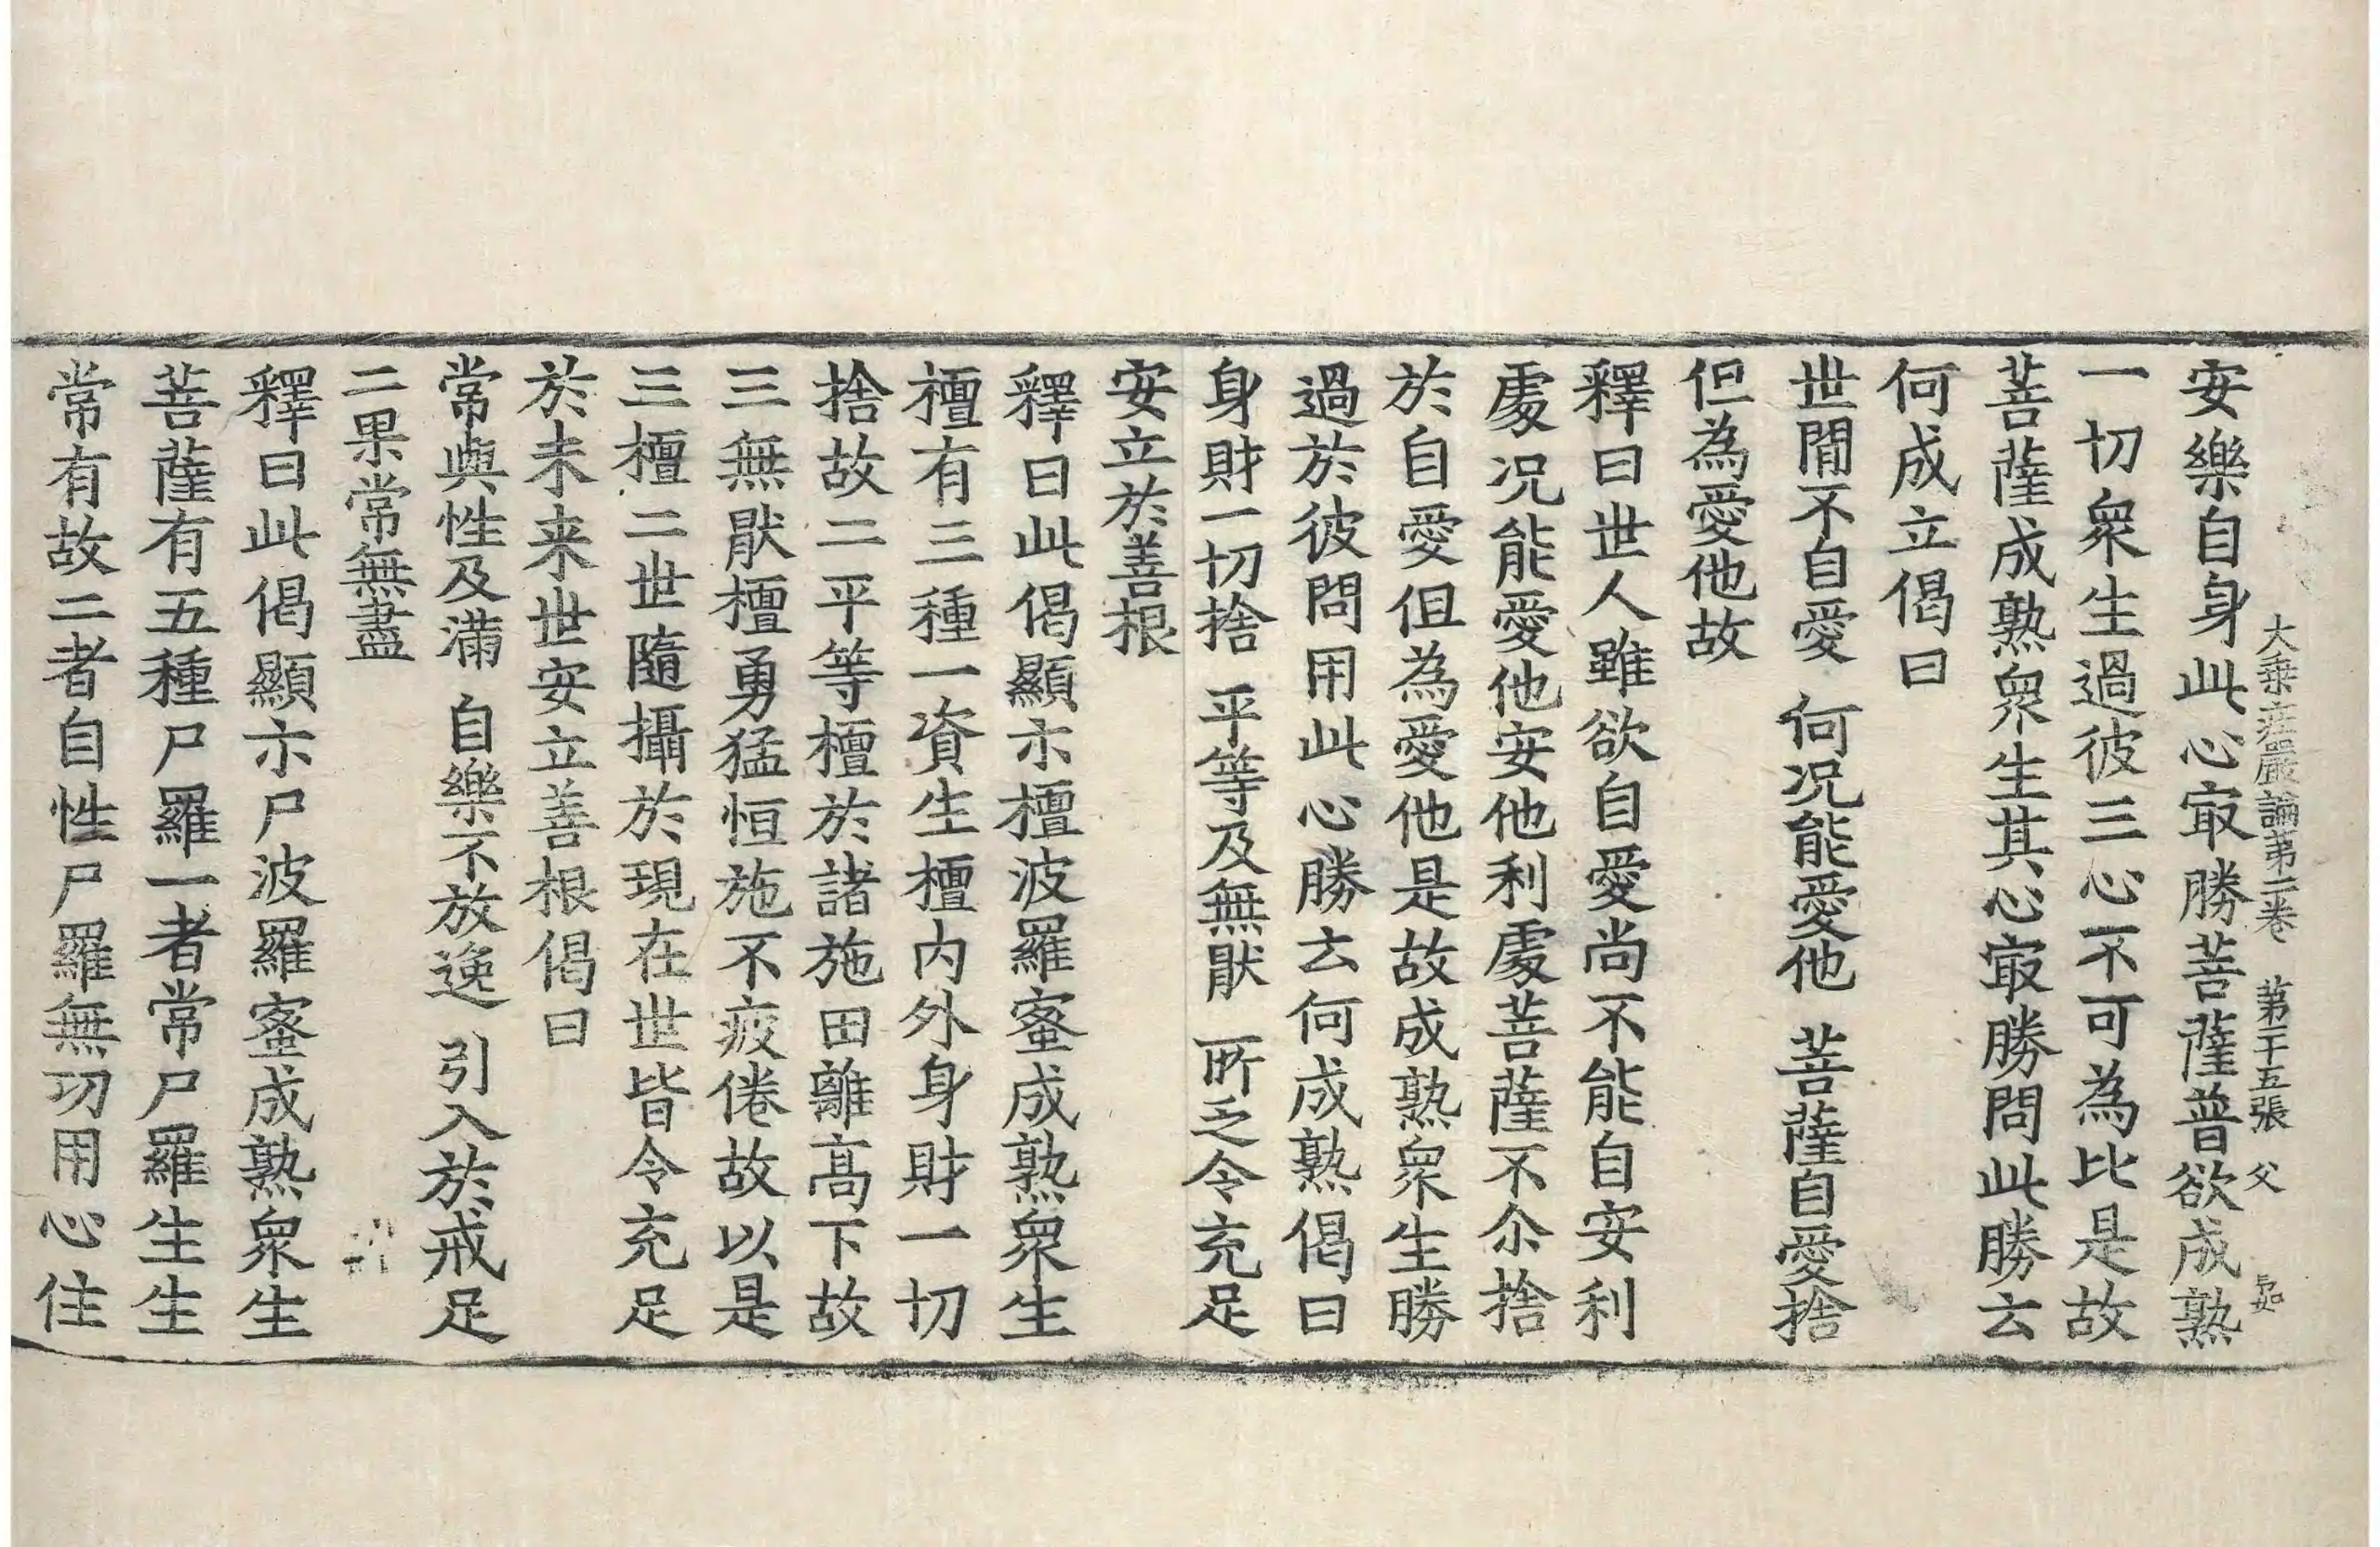 大乗疘嚴論第二卷 第二十五張 父
安樂自身此心㝡勝菩薩普欲成熟
一切衆生過彼三心不可為比是故
菩薩成熟衆生其心㝡勝問此勝云
何成立偈曰
世間不自愛 何況能愛他 菩薩自愛捨
但為愛他故
釋曰世人雖欲自愛尚不能自安利
處況能愛他安他利處菩薩不尒捨
於自愛但為愛他是故成熟衆生勝
過於彼問用此心勝云何成熟偈曰
身財一切捨 平等及無猒 所乏令充足
安立於善根
釋曰此偈顯示檀波羅蜜成熟衆生
檀有三種一資生檀內外身財一切
捨故二平等檀於諸施田離髙下故
三無猒檀勇猛恒施不疲倦故以是
三檀二世隨攝於現在世皆令充足
於未来世安立善根偈曰
常與性及滿 自樂不放逸 引入於戒足
二果常無盡
釋曰此偈顯示尸波羅蜜成熟衆生
菩薩有五種尸羅一者常尸羅生生
常有故二者自性尸羅無功用心住